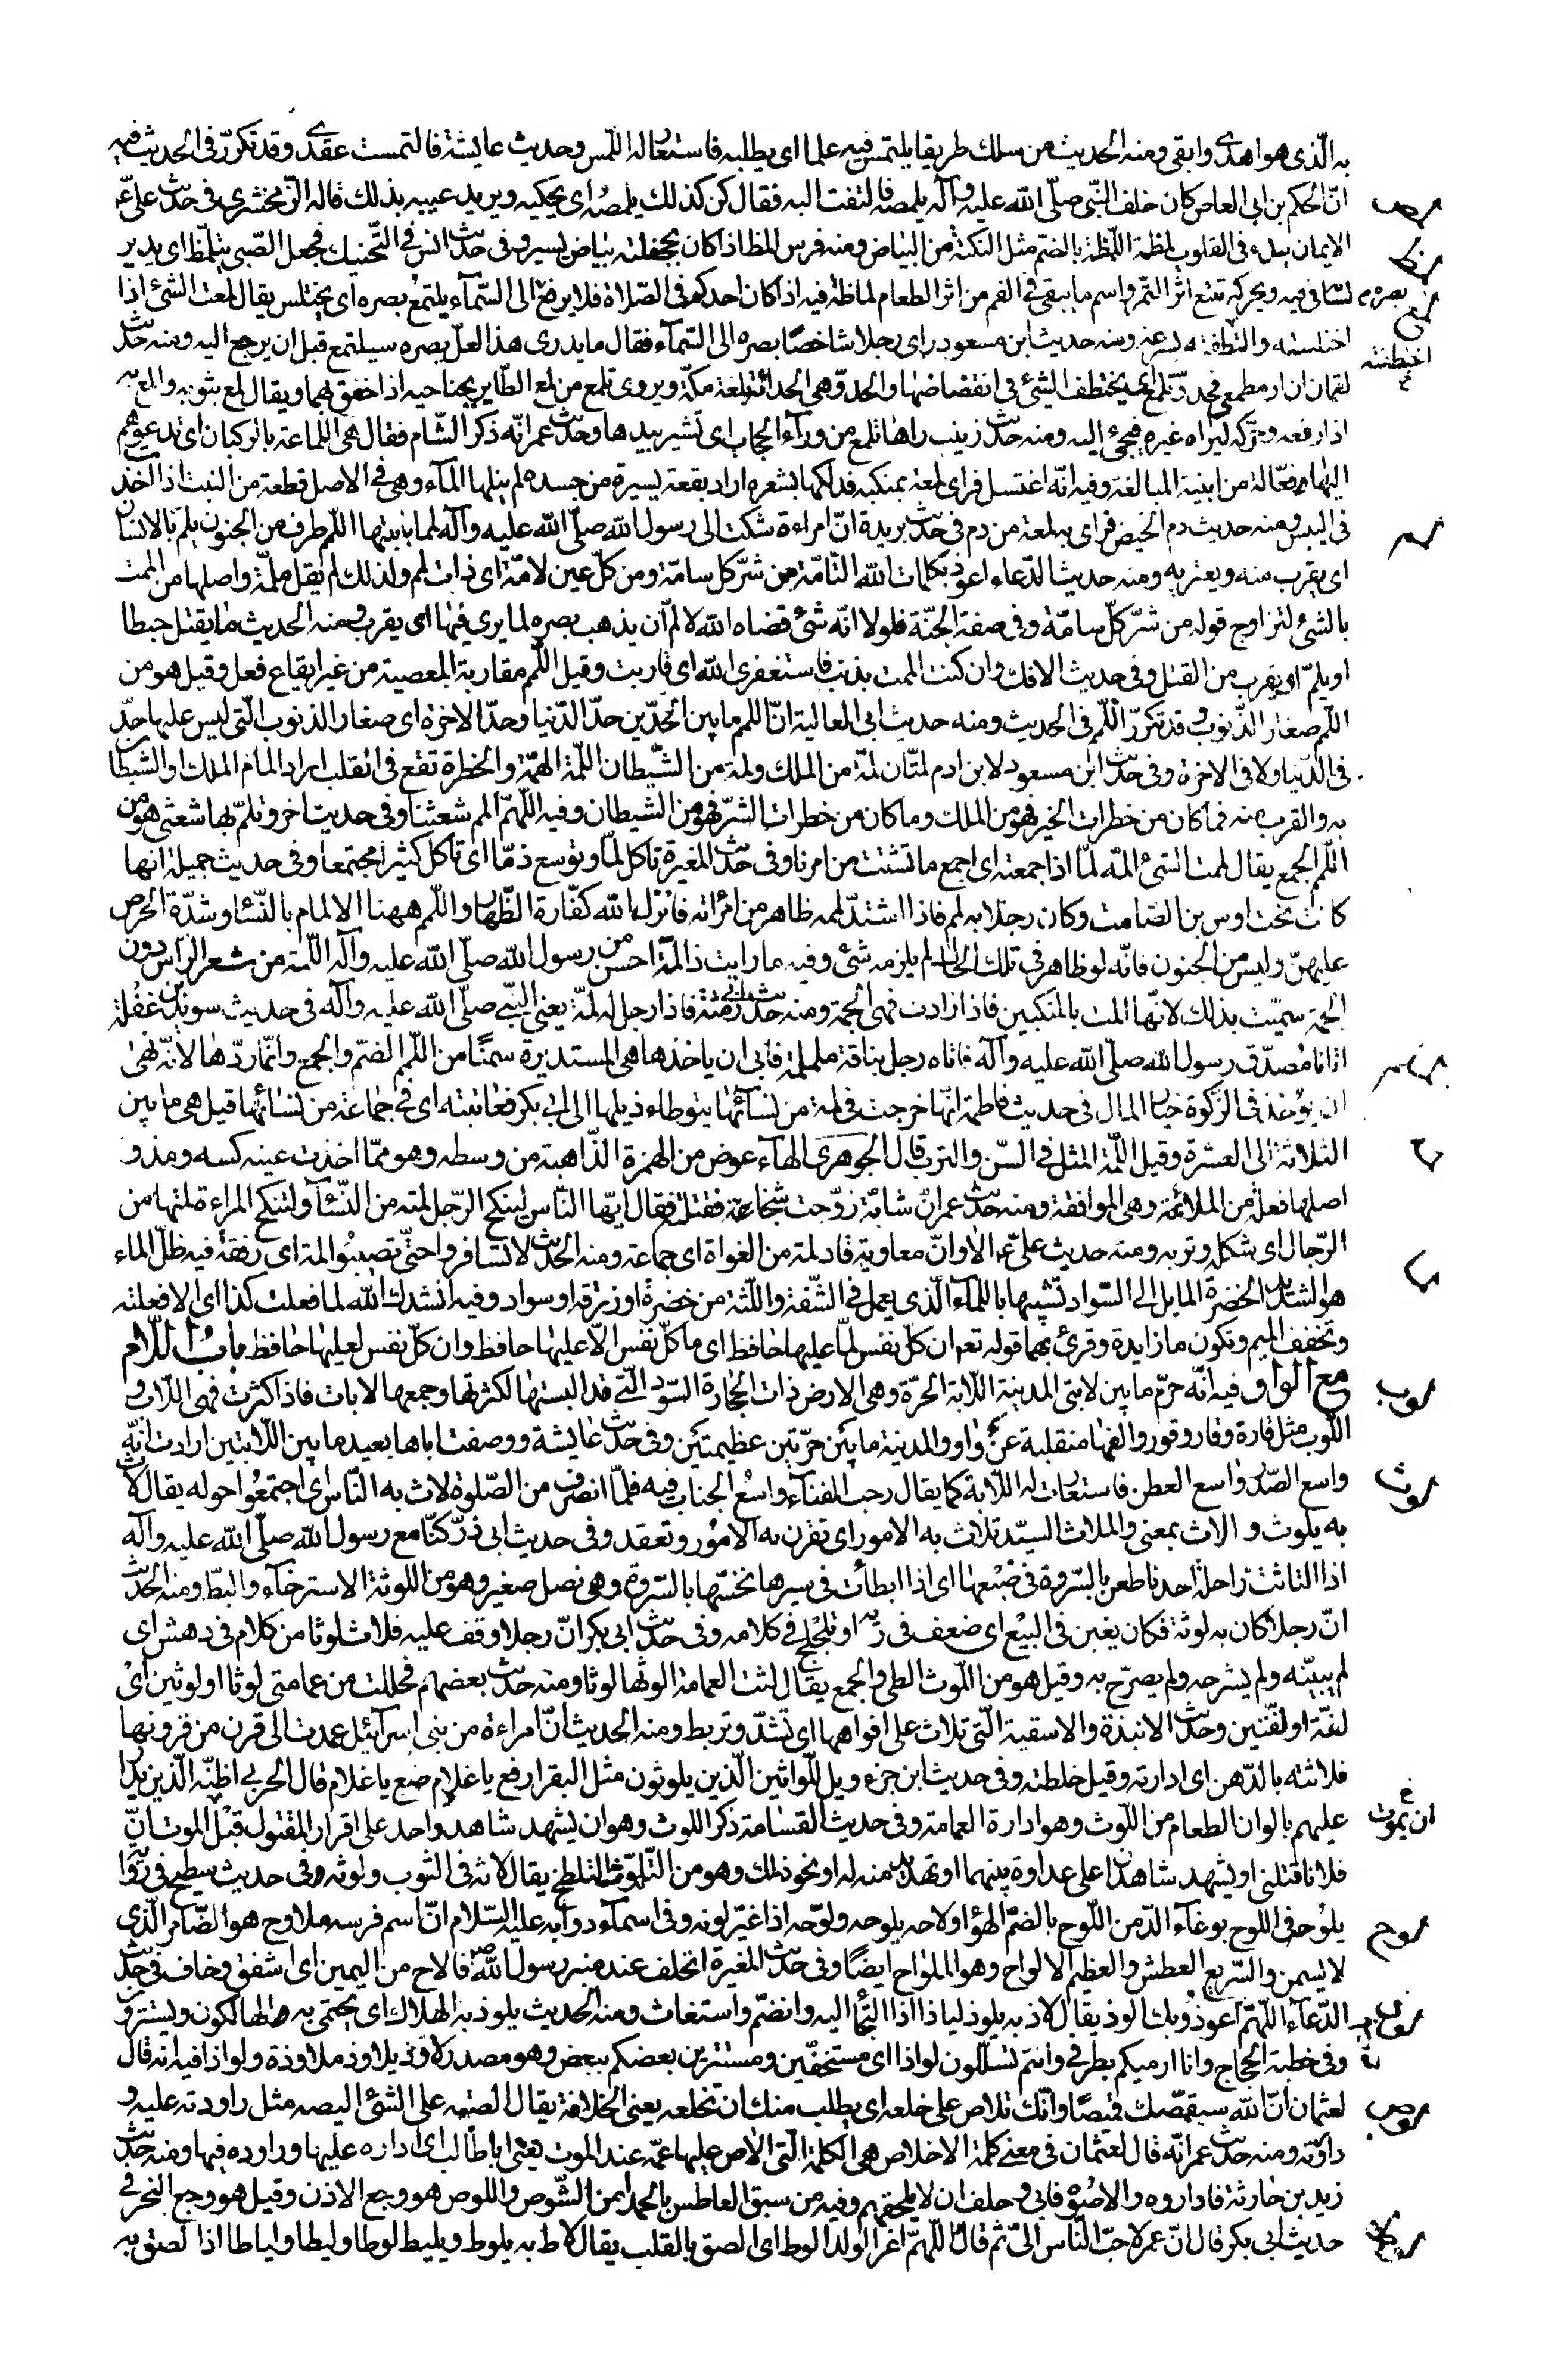 به الّذى هو اهدى وابقى ومنه الحديث من سلك طريقا يلتمس فيه علما اى يطلبه فاستعار له اللّمس وحديث عايشة فالتمست عقدى وقد تكرّر فى الحديث فيه
انّ الحكم بن ابى العاص كان خلف النّبى صلّى الله عليه وآله يلمصه فالتفت اليه فقال كن كذلك يلمصه اى يحكيه ويريد عيبه بذلك قاله الزّمخشرى فى حديث علىّ ع
الايمان يبدء فى القلوب لمظة اللّمظة بالضم مثل النكتة من البياض ومنه فرس المظ اذا كان بجحفلته بياض يسير وفى حديث انس فى التّحنيك فجعل الصّبى يتلمّظ اى يدير
لسانه فى فيه ويحركه تتبع اثر التمر واسم ما يبقى فى الفم من اثر الطعام لماظة فيه اذا كان احدكم فى الصّلاة فلا يرفع الى السّمآء يلتمع بصره اى يختلس يقال لمعت الشئ اذا
اختلسته والتطفته بسرعة ومنه حديث ابن مسعود راى رجلا شاخصًا بصره الى السّمآء فقال ما يدرى هذا لعلّ بصره سيلتمع قبل ان يرجع اليه ومنه حديث
لقمان ان ار مطمعى فحدوّ تلمع اى يختطف الشئ فى انقضاضها والحدوّ هى الحداة بلغة مكّة ويروى تلمع من لمع الطّاير بجناحيه اذا خفق بهما ويقال لمع بثوبه والمع به
اذا رفعه وحرّكه ليراه غيره فيجئ اليه ومنه حديث زينب راها تلمع من ورآء الحجاب اى تشير بيدها وحديث عمر انّه ذكر الشّام فقال هى اللماعة بالركبان اى تدعوهم
اليها وفعّالة من ابنية المبالغة وفيه انّه اغتسل فراى لمعة بمنكبه فدلكها بشعره اراد بقعة يسيرة من جسده لم ينلها المآء وهى فى الاصل قطعة من النبت اذا اخذ
فى اليبس ومنه حديث دم الحيض فراى به لمعة من دم فى حديث بريدة انّ امراءة شكت الى رسول الله صلّى الله عليه وآله لمما بابنتها اللّمم طرف من الجنون يلمّ بالانسان
اى يقرب منه ويعتريه ومنه حديث الدّعاء اعوذ بكلمات الله التّامّة من شرّ كل سامّة ومن كلّ عين لامّة اى ذات لمم ولذلك لم يقل ملمّة واصلها من الممت
بالشئ لتزاوج قوله من شرّ كلّ سامّة وفى صفة الجنّة فلولا انّه شئ قضاه الله لالمّ ان يذهب بصره لما يرى فيها اى يقرب ومنه الحديث ما يقتل حبطا
او يلمّ اى يقرب من القتل وفى حديث الافك وان كنت الممت بذنب فاستغفرى الله اى قاربت وقيل اللّمم مقاربة المعصية من غير ايقاع فعل وقيل هو من
اللّمم صغار الذّنوب وقد تكرّر اللّمم فى الحديث ومنه حديث ابى العالية انّ اللمم ما بين الحدّين حدّ الدّنيا وحدّ الاخرة اى صغار الذنوب الّتى ليس عليها حدّ
فى الدّنيا ولا فى الاخرة وفى حديث ابن مسعود لابن ادم لمّتان لمّة من الملك ولمة من الشّيطان اللّمّة الهمّة والخطرة تقع فى القلب اراد المام الملك او الشيطان
به والقرب منه فما كان من خطرات الخير فهو من الملك وما كان من خطرات الشرّ فهو من الشيطان وفيه اللّهمّ المم شعثنا وفى حديث اخر وتلمّ بها شعثى هو من
اللّم الجمع يقال لممت الشئ المّه لمّا اذا جمعته اى اجمع ما تشتت من امرنا وفى حديث المغيرة تاكل لمّا وتوسع ذمّا اى تاكل كثيرا مجتمعا وفى حديث جميلة انها
كانت تحت اوس بن الصّامت وكان رجلا به لمم فاذا اشتدّ لممه ظاهر من امراته فانزل الله كفّارة الظّهار واللّمم ههنا الالمام بالنّسآ وشدّة الحرص
عليهنّ وليس من الجنون فانّه لو ظاهر فى تلك الحال لم يلزمه شئ وفيه ما رايت ذا لمّة احسن من رسول الله صلّى الله عليه وآله اللّمة من شعر الرّاس دون
الجمّة سمّيت بذلك لانّها المت بالمنكبين فاذا زادت فهى الجمة ومنه حديث رمثة فاذا رجل له لمّة يعنى النّبى صلّى الله عليه وآله فى حديث سويد بن غفلة
اتانا مصدّق رسول الله صلّى الله عليه وآله فاتاه رجل بناقة ململمة فابى ان ياخذها هى المستديرة سمنًا من اللّمم الضمّ والجمع وانّما ردّها لانّه نهى
ان يؤخذ فى الزكوة خيار المال فى حديث فاطمة انّها خرجت فى لمة من نسآئها يتوطاء ذيلها الى ابى بكر فعاتبته اى فى جماعة من نسائها قيل هى ما بين
الثلاثة الى العشرة وقيل اللّمة المثل فى السّن والترب قال الجوهرى الهآء عوض من الهمزة الذّاهبة من وسطه وهو ممّا اخذت عينه كسه ومذ و
اصلها فعلة من الملائمة وهى الموافقة ومنه حديث عمر انّ شابّة زوّجت شيخا فقتلته فقال ايّها النّاس لينكح الرّجل لمته من النّسآ ولتنكح المراءة لمتها من
الرّجال اى شكله وتربه ومنه حديث علىّ ع الا وانّ معاوية قاد لمة من الغواة اى جماعة ومنه الحديث لا تسافروا حتّى تصيبوا لمة اى رفقة فيه ظلّ الماء
هو الشديد الخضرة المايل الى السّواد تشبيها باللماء الّذى يعمل فى الشّفة واللّثة من خضرة او زرقة او سواد وفيه انشدك الله لما فعلت كذا اى الا فعلته
وتخفف الميم وتكون ما زايدة وقرئ بهما قوله تع ان كلّ نفس لمّا عليها حافظ اى ما كلّ نفس الّا عليها حافظ وان كلّ نفس لعليها حافظ باب اللّام
مع الواو فيه انّه حرّم ما بين لابتى المدينة اللّابة الحرّة وهى الارض ذات الحجارة السّود الّتى قد البستها لكثرتها وجمعها لابات فاذا كثرت فهى اللّاب و
اللّوب مثل قارة وقار وقور والفها منقلبة عن واو والمدينة ما بين حرّتين عظيمتين وفى حديث عايشة ووصفت اباها بعيد ما بين اللّابتين ارادت انّه
واسع الصّدر واسع العطن فاستعارت له اللّابة كما يقال رحب الفنآء واسع الجناب فيه فلمّا انصرف من الصّلوة لاث به النّاس اى اجتمعوا حوله يقال لاث
به يلوث والاث بمعنى والملاث السيّد تلاث به الامور اى تقرن به الامور وتعقد وفى حديث ابى ذرّ كنّا مع رسول الله صلّى الله عليه وآله
اذا التاثت راحلة احدنا طعن بالسّروة فى ضبعها اى اذا ابطأت فى سيرها نخسّها بالسّروة وهى نصل صغير وهو من اللوثة الاسترخآء والبطّ ومنه الحديث
انّ رجلا كان به لوثة فكان يغبن فى البيع اى ضعف فى رايه او تلجلج فى كلامه وفى حديث ابى بكر انّ رجلا وقف عليه فلاث لوثا من كلام فى دهش اى
لم يبيّنه ولم يشرحه ولم يصرّح به وقيل هو من اللّوث الطى والجمع يقال لثت العمامة الوثها لوثا ومنه حديث بعضهم فحللت من عمامتى لوثا او لوثين اى
لفّة او لفّتين وحديث الانبذة والاسقية الّتى تلاث على افواهها اى تشدّ وتربط ومنه الحديث انّ امراءة من بنى اسرآئيل عمدت الى قرن من قرونها
فلاثته بالدّهن اى ادارته وقيل خلطته وفى حديث ابن جزء ويل للّواثين الّذين يلوثون مثل البقر ارفع يا غلام ضع يا غلام قال الحربى اظنّه الّذين يدار
عليهم بالوان الطعام من اللّوث وهو ادارة العمامة وفى حديث القسامة ذكر اللوث وهو ان يشهد شاهد واحد على اقرار المقتول قبل الموت انّ
فلانا قتلنى او يشهد شاهدان على عداوة بينهما او تهديد منه له او نحو ذلك وهو من التّلوّث التلطخ يقال لاثه فى التّوب ولوثه وفى حديث سطيح فى رواية
يلوحه فى اللوح بوغآء الدّمن اللّوح بالضمّ الهوآ ولاحه يلوحه ولوّحه اذا غيّر لونه وفى اسمآء دوابه عليه السّلام انّ اسم فرسه ملاوح هو الضّامر الّذى
لا يسمن والسّريع العطش والعظيم الالواح وهو الملواح ايضًا وفى حديث المغيرة اتحلف عند منبر رسول الله ص فالاح من اليمين اى اشفق وخاف فى حديث
الدّعآء اللّهمّ اعوذ وبك الوذ يقال لاذ به يلوذ لياذا اذا التجأ اليه وانضمّ واستغاث ومنه الحديث يلوذ به الهلاك اى يحتمى به الهالكون ويستترون
وفى خطبة الحجاج وانا ارميكم بطرفى وانتم تسلّلون لواذا اى مستخفّين ومستترين بعضكم ببعض وهو مصدر لاوذ يلاوذ ملاوذة ولواذا فيه انه قال
لعثمان انّ الله سيقمّصك قميصًا وانّك تلاص على خلعه اى يطلب منك ان تخلعه يعنى الخلافة يقال الصته على الشئ اليصه مثل راودته عليه و
داورته ومنه حديث عمر انّه قال لعثمان فى معنى كلمة الاخلاص هى الكلمة الّتى الاص عليها عمّه عند الموت يعنى ابا طالب اى اداره عليها وراوده فيها ومنه حديث
زيد بن حارثة فاداروه والاصوه فابى وحلف ان لا يلحقهم وفيه من سبق العاطس بالحمد امن الشّوص واللوص هو وجع الاذن وقيل هو وجع النحر فى
حديث ابى بكر قال انّ عمر لاحبّ النّاس الىّ ثم قال اللّهمّ اغفر الولد الوط اى الصق بالقلب يقال لاط به يلوط ويليط لوطا وليطا ولياطا اذا لصق به
لمص
لمظ
بصره م
لمع
اختطفته
لمم
لمه
لما
لوب
لوث
ان يموت
لوح
لوذ
لوص
لوط